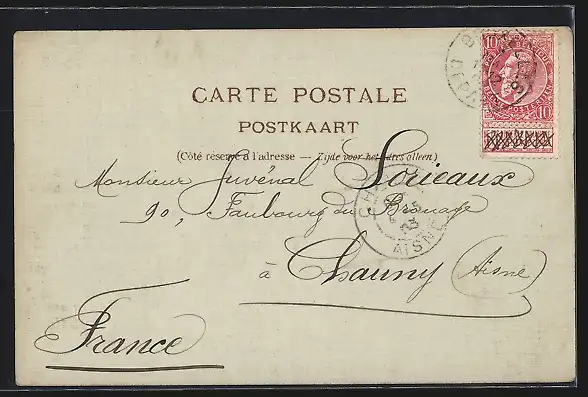 CARTE POSTALE
POSTKAART
(Côté réservé à l'adresse — Zijde voor het adres alleen)
Monsieur Juvénal Lorieaux
90, Faubourg du Brouage
à Chauny (Aisne)
France
10 10
AISNE